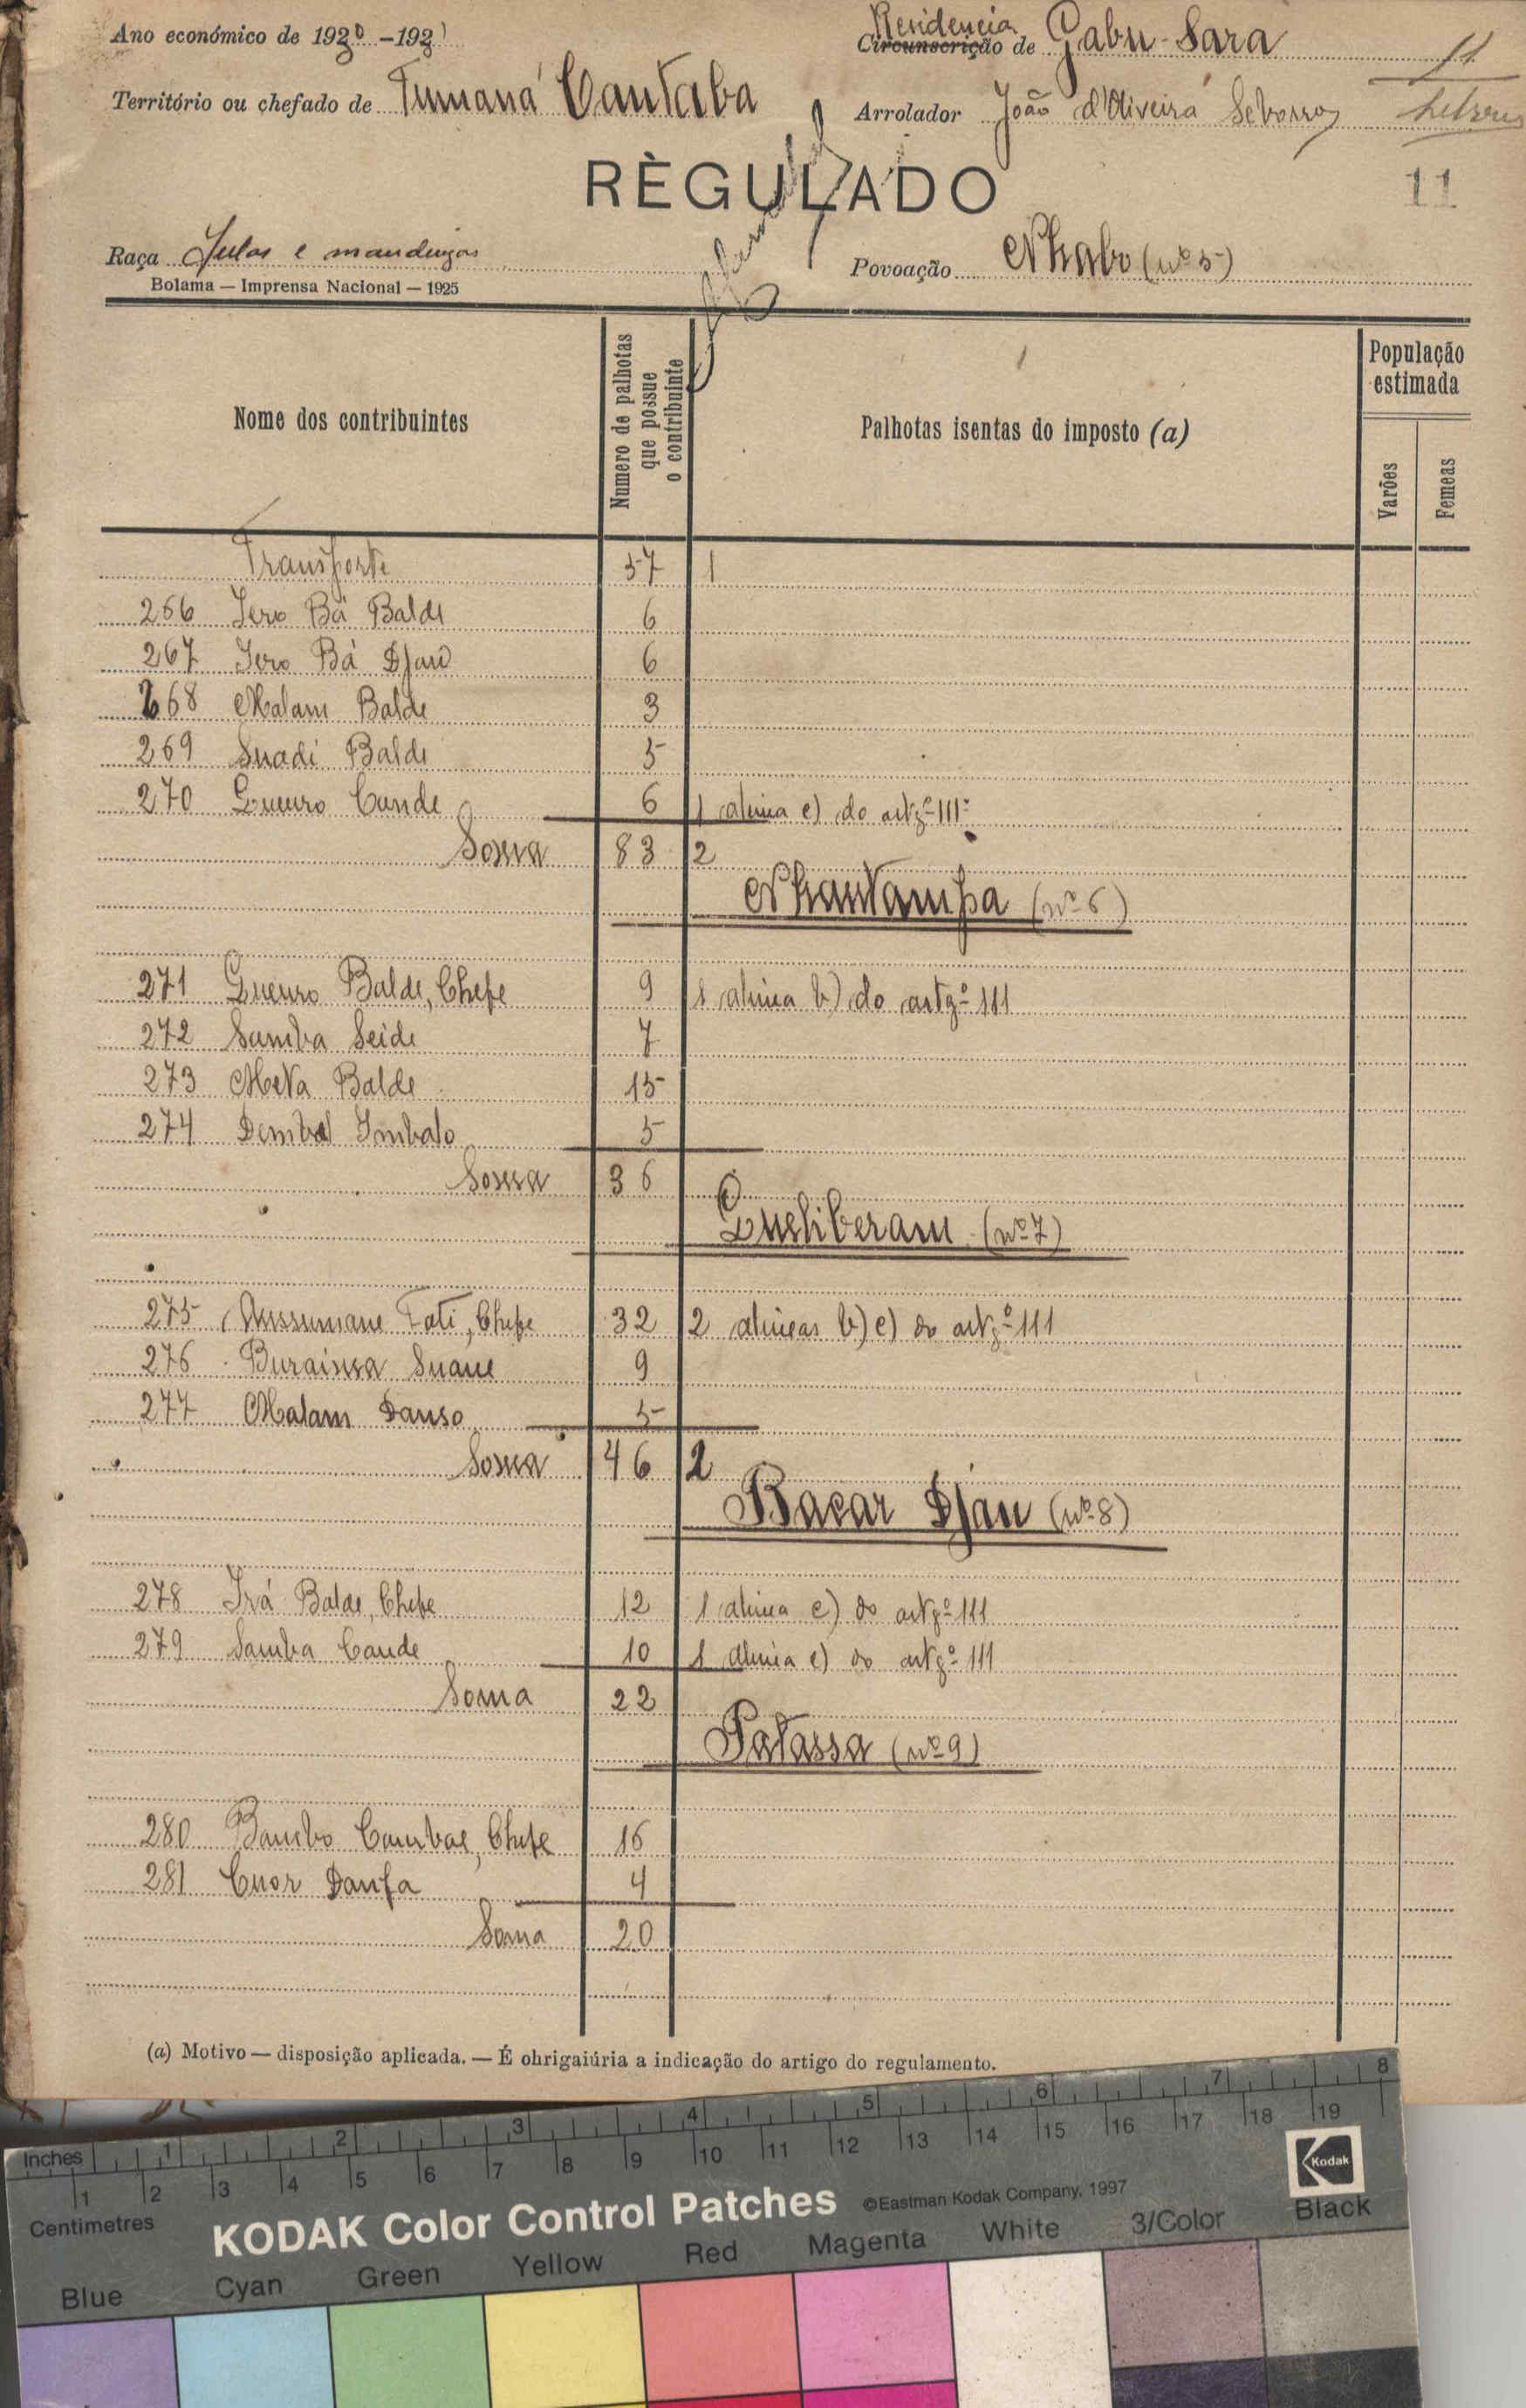 Ano económico de 1930-1931
Residencia
Circunscrição de Gabu-Sara
11
Território ou chefado de Tumaná Cantaba
Arrolador João d'Oliveira
RÈGULADO
11
Raça Fulas e mandingas
Povoação Nhabo (nº 5)
Bolama — Imprensa Nacional — 1925
Nome dos contribuintes
Numero de palhotas que possue o contribuinte
Palhotas isentas do imposto (a)
População estimada
Varões
Femeas
Transporte 57 1
266 Iero Bá Balde 6
267 Iero Bá Djau 6
268 Malam Balde 3
269 Suadi Balde 5
270 Gueuro Cande 6 1 alinea c) do artgº 111º
Soma 83 2
Nhantampa (nº 6)
271 Gueuro Balde, Chefe 9 1 alinea b) do artgº 111
272 Samba Seide 7
273 Meta Balde 15
274 Demba Imbalo 5
Soma 36
Gueliberam (nº 7)
275 Aussumane Fati, Chefe 32 2 alineas b) c) do artgº 111
276 Buraima Suane 9
277 Malam Danso 5
Soma 46 2
Bacar Djau (nº 8)
278 Irá Balde, Chefe 12 1 alinea c) do artgº 111
279 Samba Cande 10 1 alinea c) do artgº 111
Soma 22
Patassa (nº 9)
280 Bambo Cambae, Chefe 16
281 Cuor Danfa 4
Soma 20
(a) Motivo — disposição aplicada. — É ohrigaiúria a indicação do artigo do regulamento.
Inches 1 2 3 4 5 6 7 8
1 2 3 4 5 6 7 8 9 10 11 12 13 14 15 16 17 18 19
Centimetres
KODAK Color Control Patches ©Eastman Kodak Company, 1997
Kodak
Blue Cyan Green Yellow Red Magenta White 3/Color Black